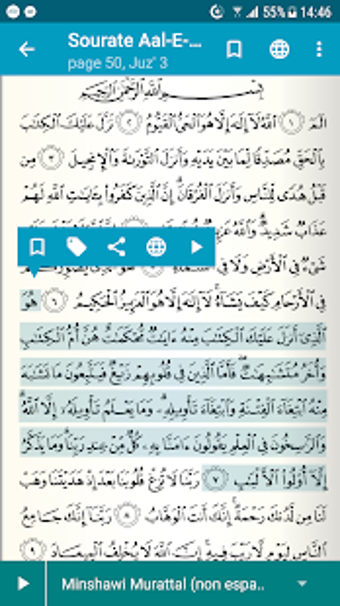 55% 14:46
Sourate Aal-E-...
page 50, Juz' 3
بِسْمِ ٱللَّهِ ٱلرَّحْمَٰنِ ٱلرَّحِيمِ
الٓمٓ ١ ٱللَّهُ لَآ إِلَٰهَ إِلَّا هُوَ ٱلْحَىُّ ٱلْقَيُّومُ ٢ نَزَّلَ عَلَيْكَ ٱلْكِتَٰبَ
بِٱلْحَقِّ مُصَدِّقًا لِّمَا بَيْنَ يَدَيْهِ وَأَنزَلَ ٱلتَّوْرَىٰةَ وَٱلْإِنجِيلَ ٣ مِن
قَبْلُ هُدًى لِّلنَّاسِ وَأَنزَلَ ٱلْفُرْقَانَ إِنَّ ٱلَّذِينَ كَفَرُوا۟ بِـَٔايَٰتِ ٱللَّهِ لَهُمْ
عَذَابٌ شَدِيدٌ وَٱللَّهُ عَزِيزٌ
شَىْءٌ فِى ٱلْأَرْضِ وَلَا فِى ٱلسَّمَآءِ
فِى ٱلْأَرْحَامِ كَيْفَ يَشَآءُ لَآ إِلَٰهَ إِلَّا هُوَ ٱلْعَزِيزُ ٱلْحَكِيمُ ٦ هُوَ
ٱلَّذِىٓ أَنزَلَ عَلَيْكَ ٱلْكِتَٰبَ مِنْهُ ءَايَٰتٌ مُّحْكَمَٰتٌ هُنَّ أُمُّ ٱلْكِتَٰبِ
وَأُخَرُ مُتَشَٰبِهَٰتٌ فَأَمَّا ٱلَّذِينَ فِى قُلُوبِهِمْ زَيْغٌ فَيَتَّبِعُونَ مَا تَشَٰبَهَ
مِنْهُ ٱبْتِغَآءَ ٱلْفِتْنَةِ وَٱبْتِغَآءَ تَأْوِيلِهِۦ وَمَا يَعْلَمُ تَأْوِيلَهُۥٓ إِلَّا ٱللَّهُ
وَٱلرَّٰسِخُونَ فِى ٱلْعِلْمِ يَقُولُونَ ءَامَنَّا بِهِۦ كُلٌّ مِّنْ عِندِ رَبِّنَا وَمَا يَذَّكَّرُ
إِلَّآ أُو۟لُوا۟ ٱلْأَلْبَٰبِ ٧ رَبَّنَا لَا تُزِغْ قُلُوبَنَا بَعْدَ إِذْ هَدَيْتَنَا وَهَبْ
لَنَا مِن لَّدُنكَ رَحْمَةً إِنَّكَ أَنتَ ٱلْوَهَّابُ ٨ رَبَّنَآ إِنَّكَ جَامِعُ
ٱلنَّاسِ لِيَوْمٍ لَّا رَيْبَ فِيهِ إِنَّ ٱللَّهَ لَا يُخْلِفُ ٱلْمِيعَادَ ٩
Minshawi Murattal (non espa..